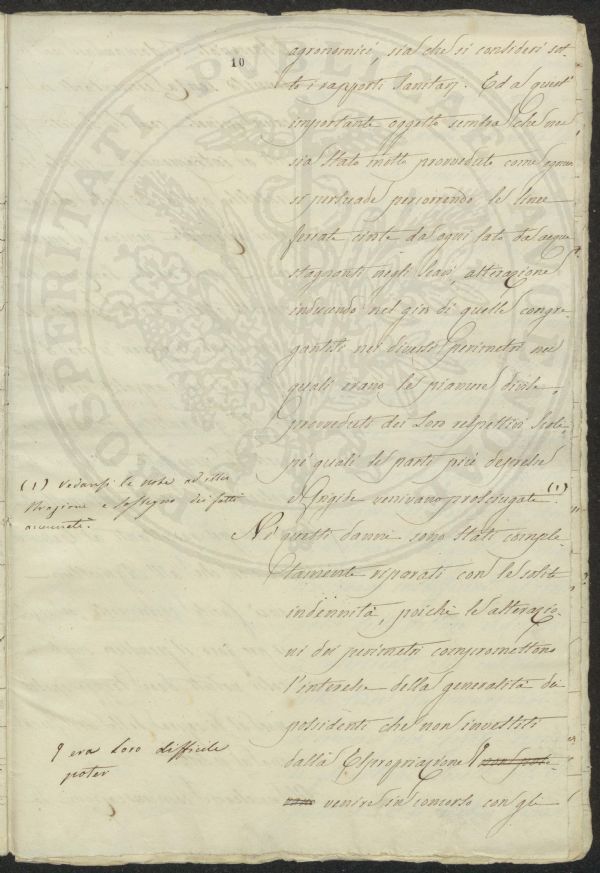 10
agronomici, sia che si consideri sot-
to i rapporti Sanitarj. Ed a quest'
importante oggetto sembra che non
sia stato molto provveduto come ognuno
si persuade percorrendo le linee
ferrate cinte da ogni lato da acque
stagnanti negli Scavi, alterazione
inducendo nel giro di quelle congre-
gantisi nei diversi perimetri nei
quali erano le pianure divise,
provveduti dei Loro respettivi Scoli
pé quali le parti più depresse
e frigide venivano prosciugate (1).
(1) Vedansi le note ad illu
strazione e sostegno dei fatti
accennati.
Nè questi danni sono stati comple-
tamente riparati con le solite
indennità, poichè le alterazio-
ni dei perimetri compromettono
l'interesse della generalità dei
possidenti che non investiti
dalla Espropriazione non pote-
vano venire in concorso con gli
era Loro difficile
poter
PROSPERITATI PUBLICAE